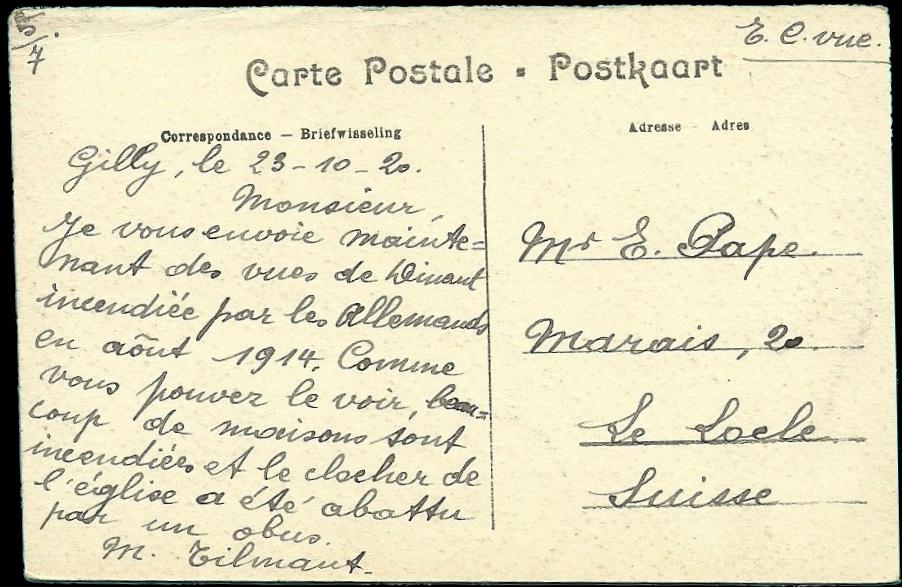 E. C. vue.
Carte Postale - Postkaart
Correspondance — Briefwisseling
Gilly, le 23-10-20.
Monsieur,
Je vous envoie mainte=
nant des vues de Dinant
incendiée par les Allemands
en aôut 1914. Comme
vous pouvez le voir, beau=
coup de maisons sont
incendiées et le clocher de
l'église a été abattu
par un obus.
M. Tilmant.
Adresse - Adres
Mr E. Pape.
Marais, 20
Le Locle
Suisse